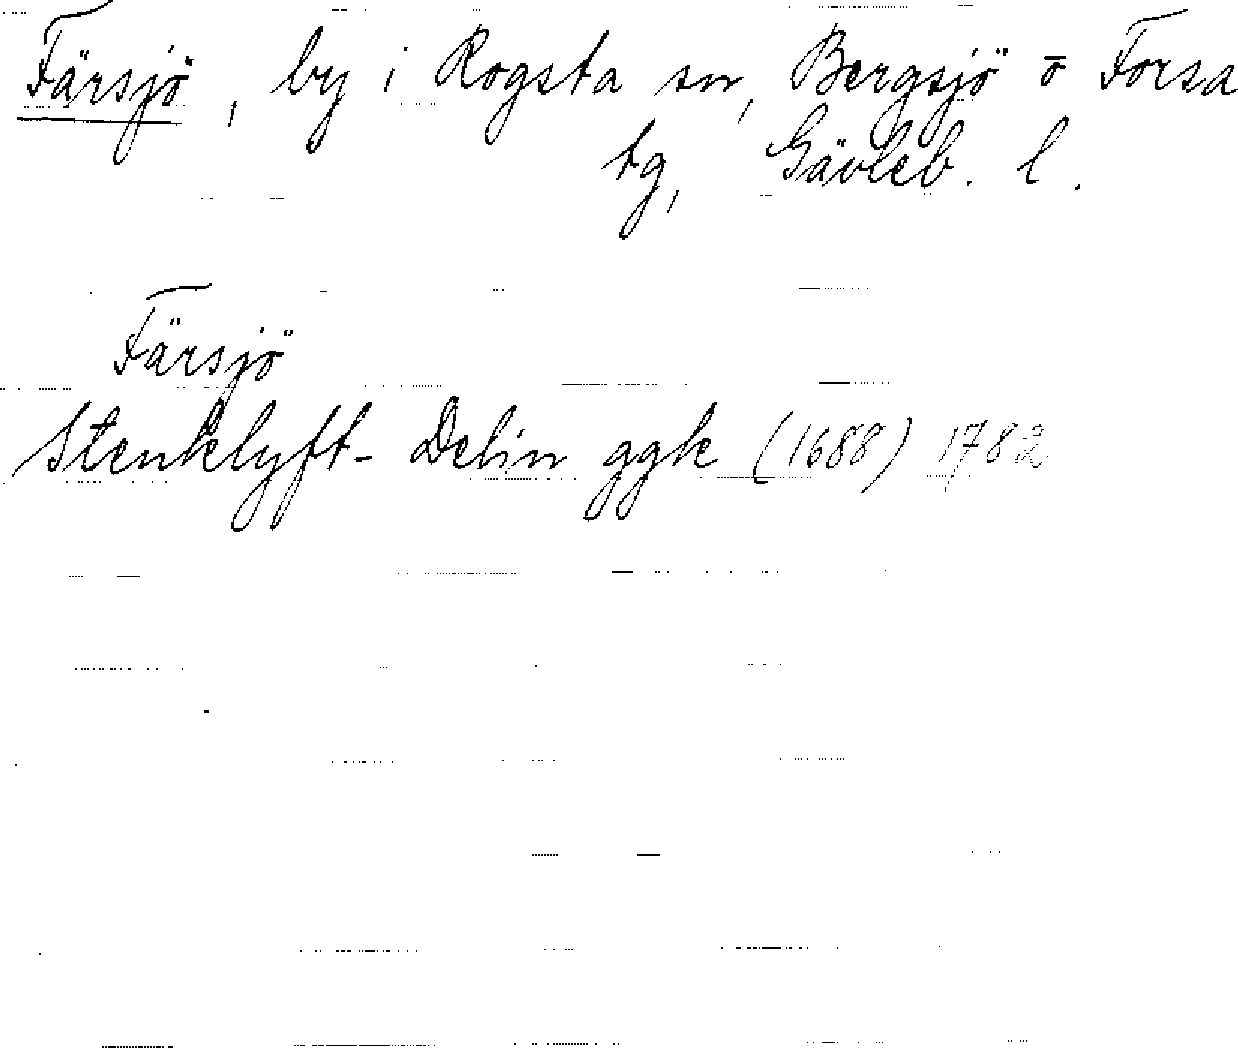 Färsjö, by i Rogsta sn, Bergsjö o Forsa
tg, Gävleb. l.
Färsjö
Stenklyft- Delin ggk (1688) 1782